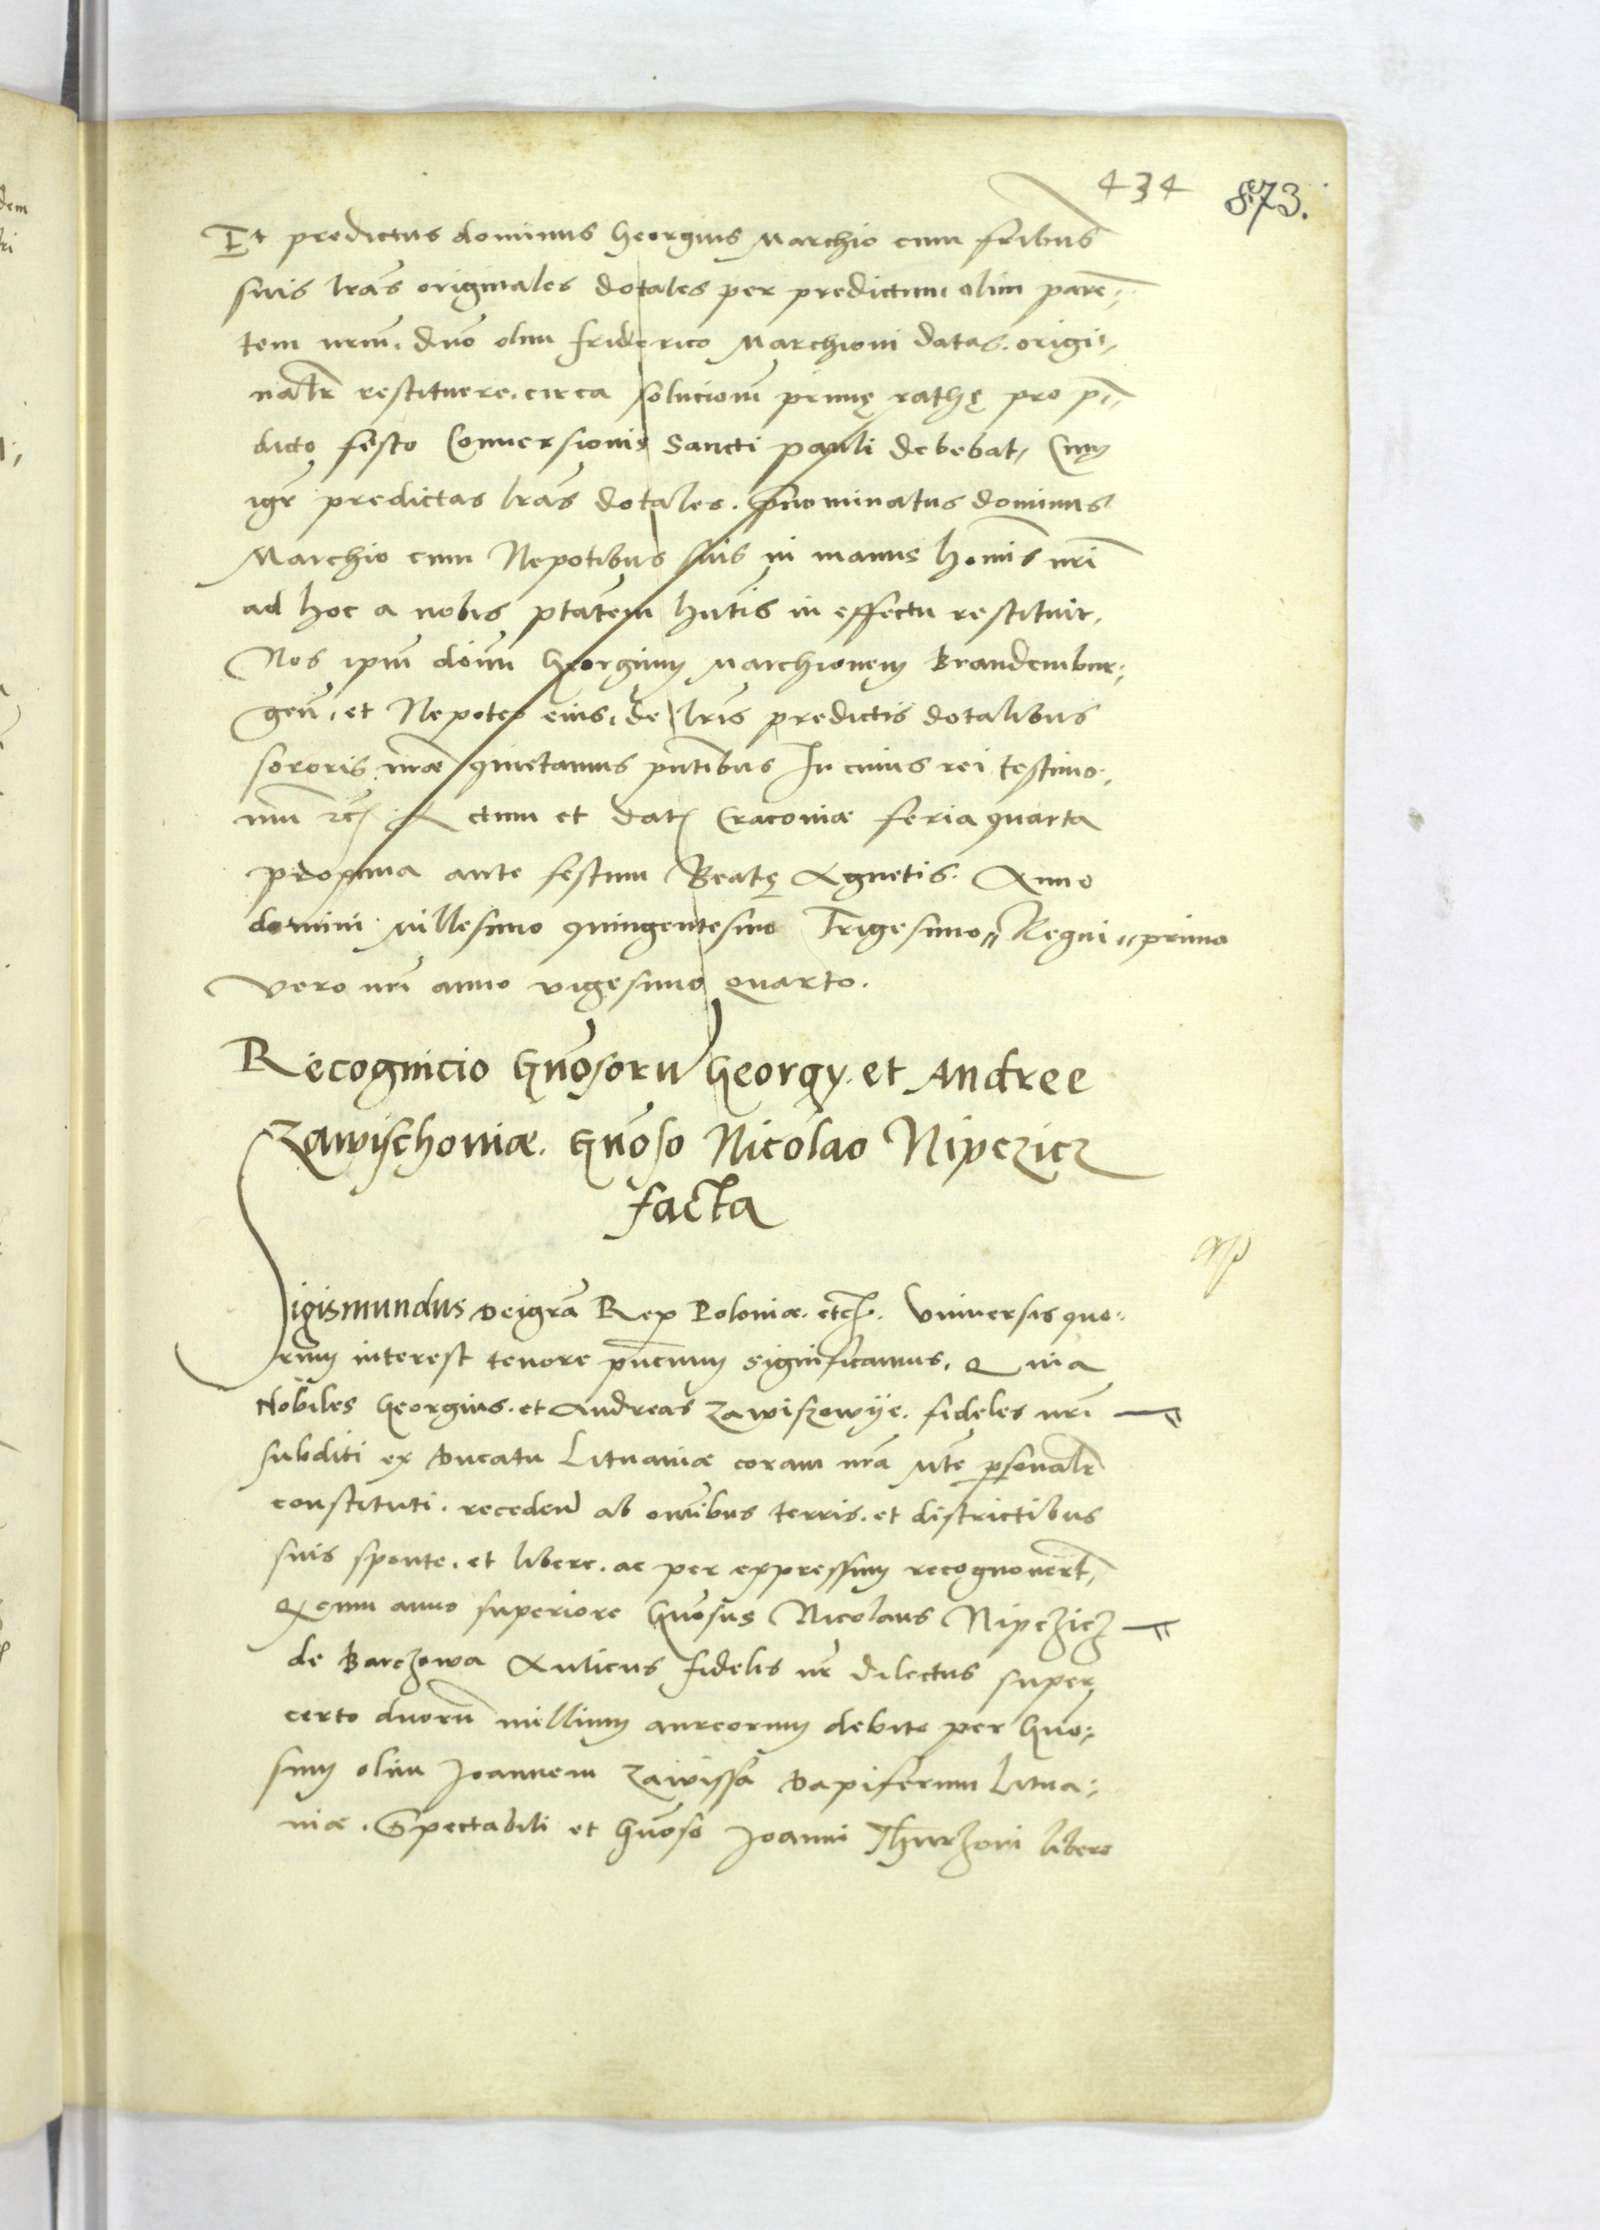 434 873.
Et predictus dominus Georgius Marchio cum fr̄ibus
suis l̄ras originales dotales per predictum olim paren̄-
tem nr̄um, dn̄o olim Friderico Marchioni datas, origi-
nal̄r restituere, circa solucionem̄ primę rathę pro p̄-
dicto festo Conversionis Sancti pauli debebat, Cum
igr̄ predictas l̄ras dotales, p̄nominatus dominus
Marchio cum Nepotibus suis in manus hom̄is nr̄i
ad hoc a nobis p̄tatem hn̄tis in effectu restituit,
Nos ipm̄ dōnm Georgium Marchionem Brandembur-
gen̄, et Nepotes eius, de l̄ris predictis dotalibus
sororis nr̄æ quietamus pn̄tibus In cuius rei testimo-
nium rc̄ Actum et dat Cracoviæ feria quarta
proxima ante festum Beatę Agnetis Anno
domini Millesimo quingentesimo Trigesimo „ Regni „ primo
vero nr̄i anno vigesimo quarto.
Recognicio Gn̄osorū Georgy et Andree
Zawischoviæ. Gn̄oso Nicolao Nipczicz
facta
Sigismundus deigr̄a Rex Poloniæ etc. Universis quo-
rum interest tenore pn̄cium significamus, Quia
Nobiles Georgius et Andreas Zawiszowÿe fideles nr̄i
subditi ex Ducatu Lituaniæ coram nr̄a Mte p̱sonal̄r
constituti, recedeñ ab om̄ibus terris et districtibus
suis sponte et libere ac per expressum recognovert̄,
Q cum anno superiore Gn̄osus Nicolaus Nipczicz
de Barczowa Aulicus fidelis nr̄ dilectus super
certo duorū millium aureorum debito per Gn̄o-
sum olim Joannem Zawissa Dapiferum Litua-
niæ. Spectabili et Gn̄oso Joanni Thurzoni libero